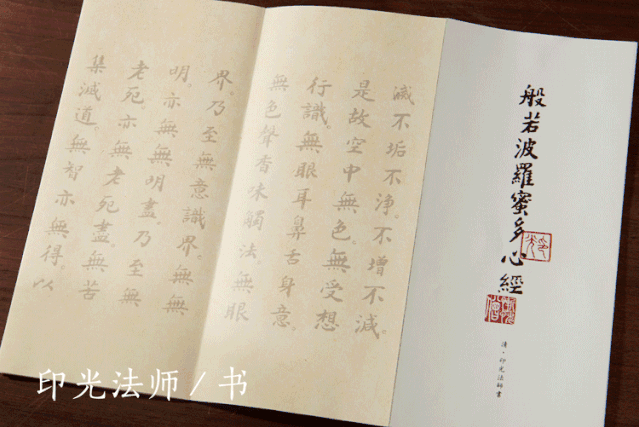 般若波羅蜜多心經
清·印光法師書
滅不垢不淨。不增不減。
是故空中無色。無受想
行識。無眼耳鼻舌身意。
無色聲香味觸法。無眼
界。乃至無意識界。無無
明。亦無無明盡。乃至無
老死。亦無老死盡。無苦
集滅道。無智亦無得。以
印光法师 / 书